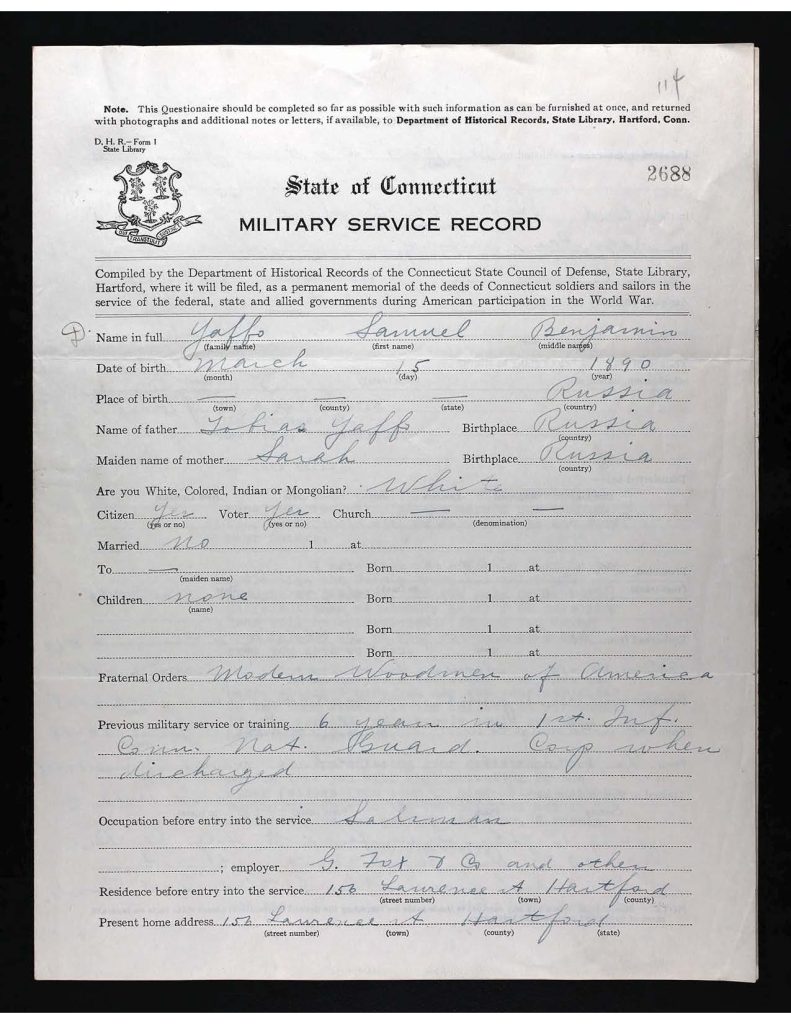 114
Note. This Questionaire should be completed so far as possible with such information as can be furnished at once, and returned
with photographs and additional notes or letters, if available, to Department of Historical Records, State Library, Hartford, Conn.
D. H. R.—Form 1
State Library
2688
State of Connecticut
MILITARY SERVICE RECORD
Compiled by the Department of Historical Records of the Connecticut State Council of Defense, State Library,
Hartford, where it will be filed, as a permanent memorial of the deeds of Connecticut soldiers and sailors in the
service of the federal, state and allied governments during American participation in the World War.
Name in full Yaffe Samuel Benjamin
(family name) (first name) (middle names)
Date of birth March 15 1890
(month) (day) (year)
Place of birth — — — Russia
(town) (county) (state) (country)
Name of father Tobias Yaffe Birthplace Russia
(country)
Maiden name of mother Sarah Birthplace Russia
(country)
Are you White, Colored, Indian or Mongolian? White
Citizen Yes Voter Yes Church — —
(yes or no) (yes or no) (denomination)
Married no 1 at
To — Born 1 at
(maiden name)
Children none Born 1 at
(name)
Born 1 at
Born 1 at
Fraternal Orders Modern Woodmen of America
Previous military service or training 6 years in 1st. Inf.
Conn. Nat. Guard. Corp when
discharged
Occupation before entry into the service Salesman
; employer G. Fox & Co and others
Residence before entry into the service 156 Lawrence St Hartford
(street number) (town) (county)
Present home address 156 Lawrence St Hartford
(street number) (town) (county) (state)